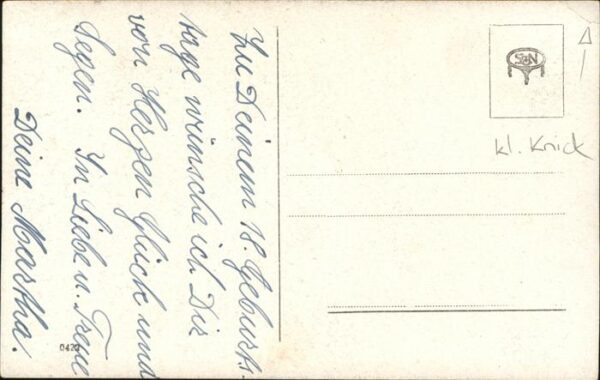 Zu Deinem 18. Geburts-
tage wünsche ich Dir
von Herzen Glück und
Segen. In Liebe u. Treue
Deine Martha.
kl. Knick
0420